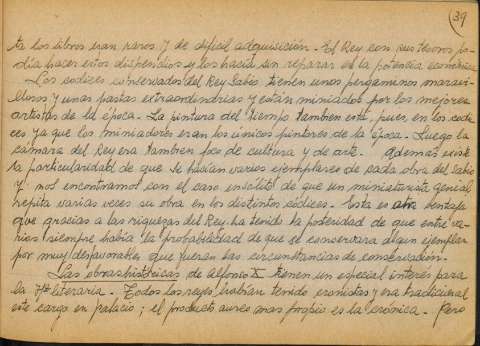 (39
ta los libros eran raros y de difícil adquisición. El Rey con sus tesoros po-
día hacer estos dispendios y los hacía sin reparar en la potencia económica.
Los códices conservados del Rey Sabio tienen unos pergaminos maravi-
llosos y unas pastas extraordinarias y están miniados por los mejores
artistas de la época. La pintura del tiempo tambien está, pues, en los codi-
ces ya que los miniadores eran los únicos pintores de la época. Luego la
cámara del Rey era tambien foco de cultura y de arte. Además existe
la particularidad de que se hacían varios ejemplares de cada obra del Sabio
y nos encontramos con el caso insólito de que un miniaturista genial
repita varias veces su obra en los distintos códices. Esta es otra ventaja
que gracias a las riquezas del Rey ha tenido la posteridad de que entre va-
rios siempre había la probabilidad de que se conservara algun ejemplar
por muy desfavorables que fueran las circunstancias de conservación.
Las obras históricas de Alfonso X tienen un especial interés para
la literaria. Todos los reyes habían tenido cronistas y era tradicional
este cargo en palacio; el producto aureo mas propio es la crónica. Pero